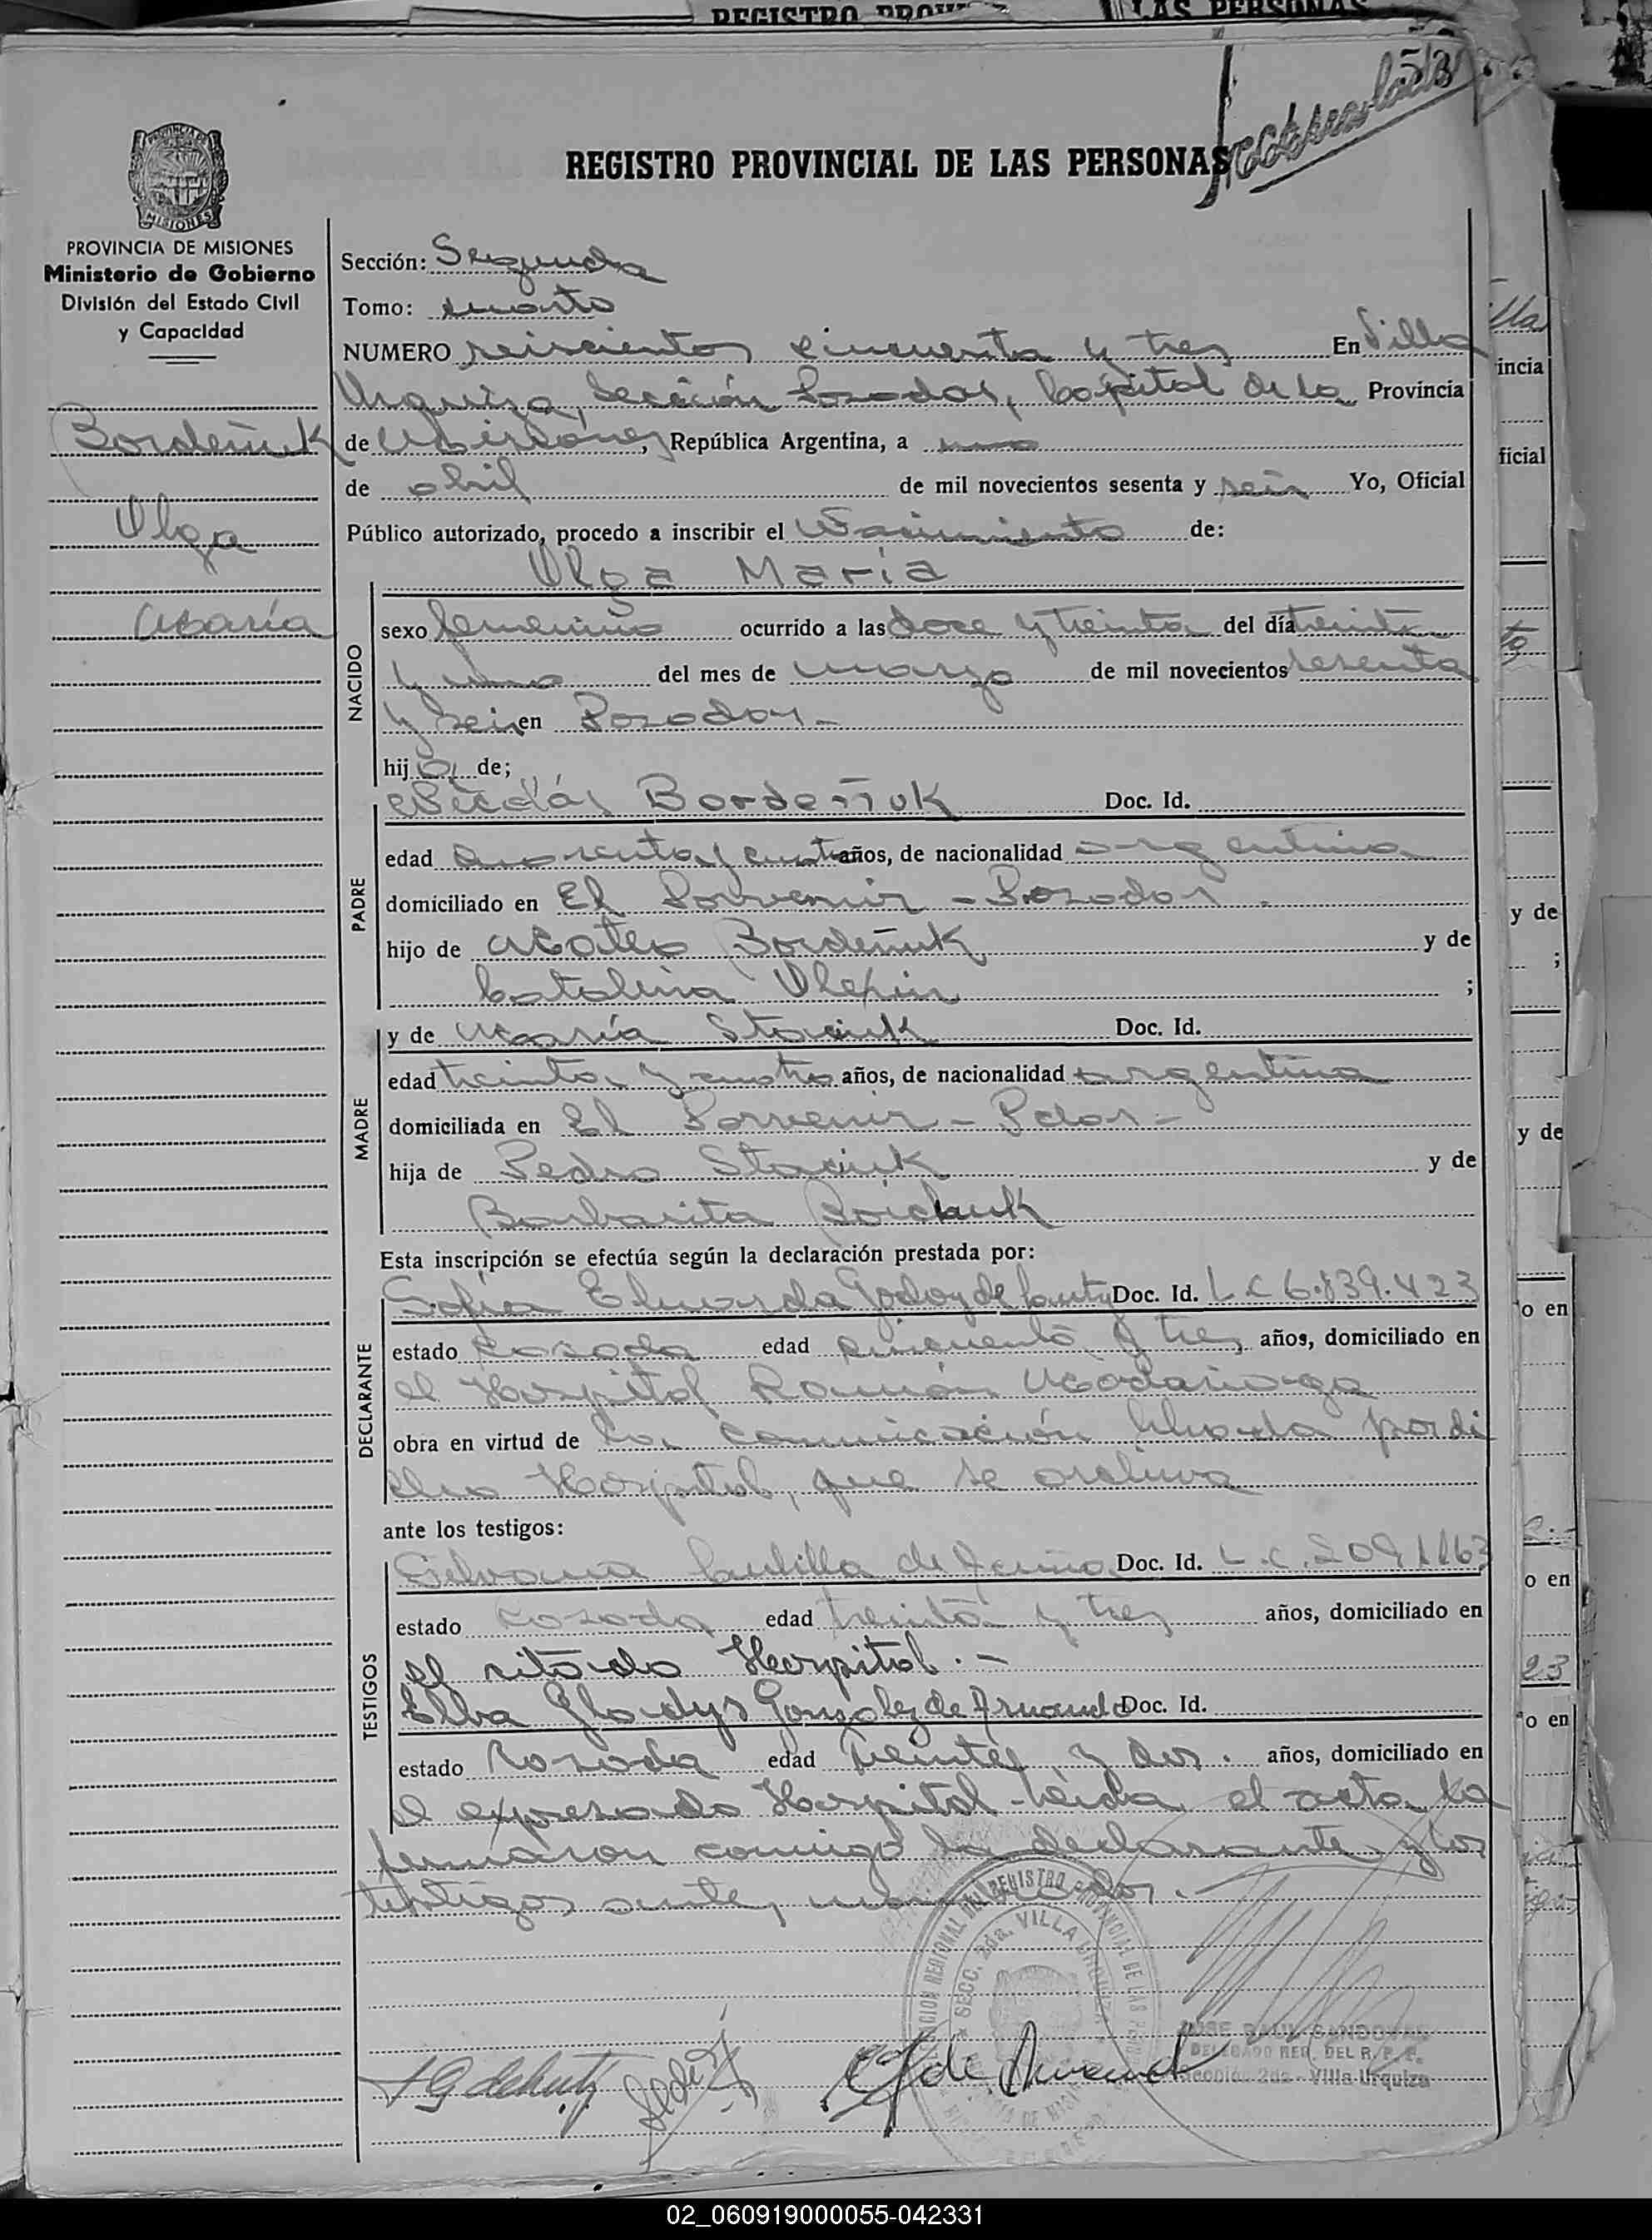 REGISTRO PROVINCIAL DE LAS PERSONAS
MISIONES
PROVINCIA DE MISIONES
Ministerio de Gobierno
División del Estado Civil
y Capacidad
Bordeñuk
Olga
María
Sección: Segunda
Tomo: cuarto
NUMERO seiscientos cincuenta y tres En Villa
Urquiza, Sección Posadas, Capital de la Provincia
de Misiones, República Argentina, a uno
de abril de mil novecientos sesenta y seis Yo, Oficial
Público autorizado, procedo a inscribir el Nacimiento de:
Olga María
NACIDO
sexo femenino ocurrido a las doce y treinta del día treinta
y uno del mes de marzo de mil novecientos sesenta
y seis en Posadas -
hija de;
PADRE
Nicolás Bordeñuk Doc. Id.
edad cuarenta y cuatro años, de nacionalidad argentina
domiciliado en El Porvenir - Posadas
hijo de Mateo Bordeñuk y de
Catalina ;
MADRE
y de María Doc. Id.
edad treinta y cuatro años, de nacionalidad argentina
domiciliada en El Porvenir - Pdas -
hija de Pedro y de
Barbarita
Esta inscripción se efectúa según la declaración prestada por:
DECLARANTE
Sofía Eduarda Godoy de Doc. Id. L.C 6.839.423
estado casada edad cincuenta y tres años, domiciliado en
el Hospital Ramón Madariaga
obra en virtud de la comunicación librada por di
cho Hospital, que se archiva
ante los testigos:
TESTIGOS
Silvana de Doc. Id. L.C. 2091163
estado casada edad treinta y tres años, domiciliado en
el citado Hospital. -
Elba Gladys González de Doc. Id.
estado casada edad treinta y dos. años, domiciliado en
el expresado Hospital - leída el acta la
firmaron conmigo la declarante y los
testigos ante,
SECC. 2da. VILLA URQUIZA
JOSE RAUL SANDOVAL
DELEGADO REG. DEL R. P. P.
Sección 2da - Villa Urquiza
02_060919000055-042331